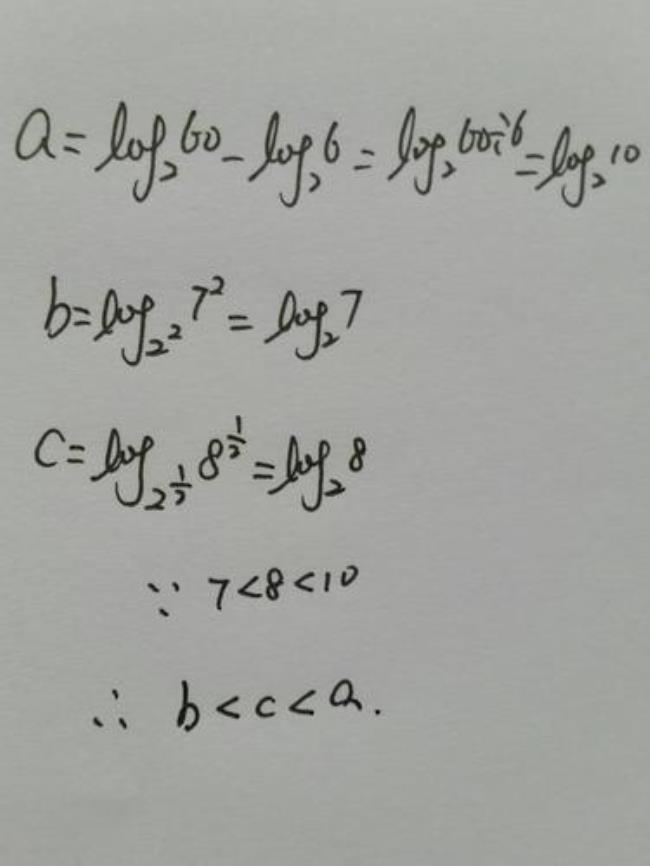 a = log₂60 - log₂6 = log₂60÷6 = log₂10
b = log_{2²}7² = log₂7
c = log_{2^{1/2}}8^{1/2} = log₂8
∵ 7<8<10
∴ b<c<a.